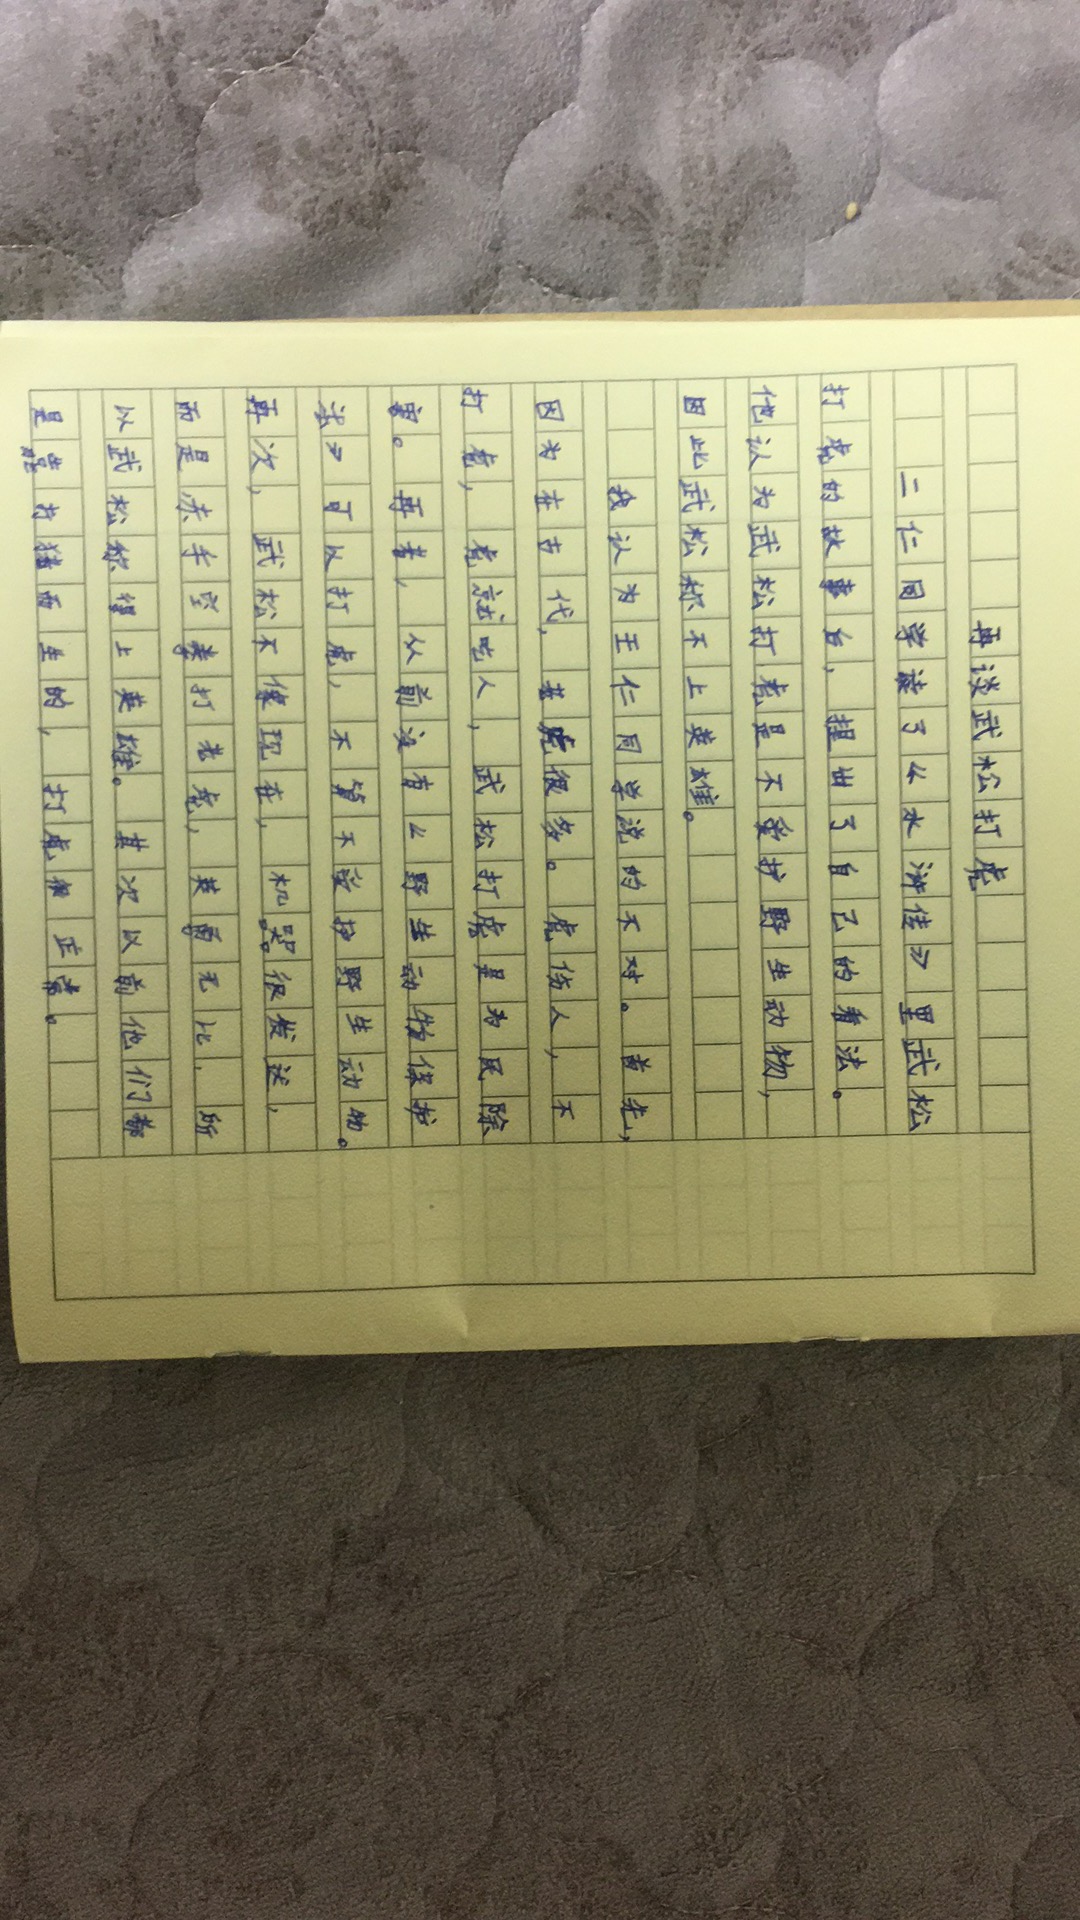 再谈武松打虎
二仁同学读了《水浒传》里武松
打虎的故事后，提出了自己的看法。
他认为武松打老是不爱护野生动物，
因此武松称不上英雄。
我认为王仁同学说的不对。首先，
因为在古代，老虎很多。虎伤人，不
打老，老就吃人，武松打虎是为民除
害。再者，从前没有《野生动物保护
法》可以打虎，不算不爱护野生动物。
再次，武松不像现在，机器很发达，
而是赤手空拳打老虎，英勇无比，所
以武松称得上英雄。其次以前他们都
是靠打猎而生的，打虎很正常。